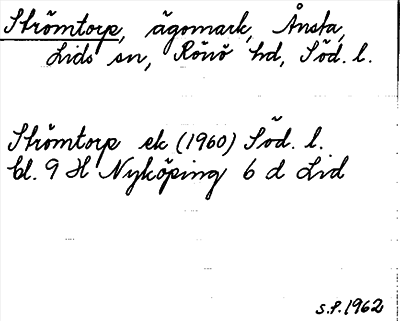 Strömtorp, ägomark, Ånsta,
Lids sn, Rönö hd, Söd. l.
Strömtorp ek (1960) Söd. l.
bl. 9 H Nyköping 6 d Lid
S.P. 1962